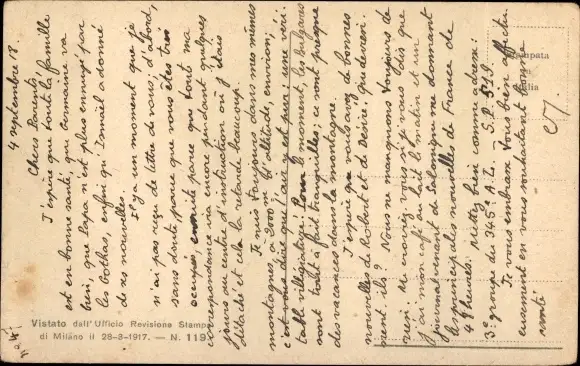 4 septembre 18.
Chers Parents
J'espère que toute la famille
est en bonne santé, que Germaine va
bien, que Papa n'est plus ennuyé par
les Gothas, enfin qu'Ismaïl a donné
de ses nouvelles.
Il y a un moment que je
n'ai pas reçu de lettre de vous; d'abord,
sans doute parce que vous êtes très
occupés, ensuite parce que toute ma
correspondance va encore pendant quelques
jours au centre d'instruction où j'étais
détaché et cela la retarde beaucoup.
Je suis toujours dans mes mêmes
montagnes, à 2000 m d'altitude, environ;
c'est vous dire que l'air y est pur; une véri-
table villégiature! Pour le moment, les bulgares
sont tout à fait tranquilles; ce sont presque
des vacances dans la montagne.
J'espère que vous avez de bonnes
nouvelles de Robert et de Désiré. Que devien-
nent-ils? Nous ne manquons toujours de
rien. Me croirez vous si je vous dis que
j'ai mon café au lait le matin et un
journal venant de Salonique me donnant
les principales nouvelles de France de
4 heures. Mettez bien comme adresse:
3e groupe du 345e A.L. S.P. 519.
Je vous embrasse tous bien affectu-
eusement en vous souhaitant bonne
santé.
Stampata
Italia
Vistato dall'Ufficio Revisione Stampa
di Milano il 28-3-1917. — N. 119